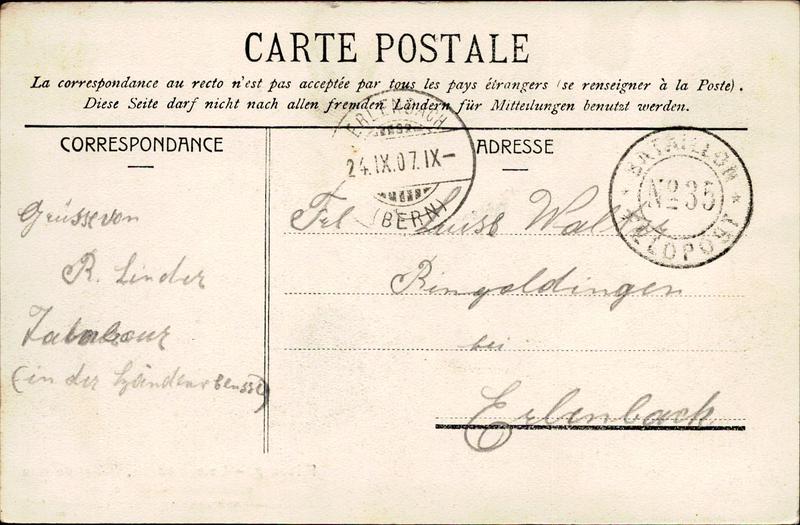 CARTE POSTALE
La correspondance au recto n'est pas acceptée par tous les pays étrangers (se renseigner à la Poste).
Diese Seite darf nicht nach allen fremden Ländern für Mitteilungen benutzt werden.
CORRESPONDANCE
ADRESSE
ERLENBACH
24.IX.07.IX-
(BERN)
BATAILLON
No 35
FELDPOST
Grüsse von
R. Linder
(in der
Frl. Luise Walter
Ringoldingen
bei
Erlenbach